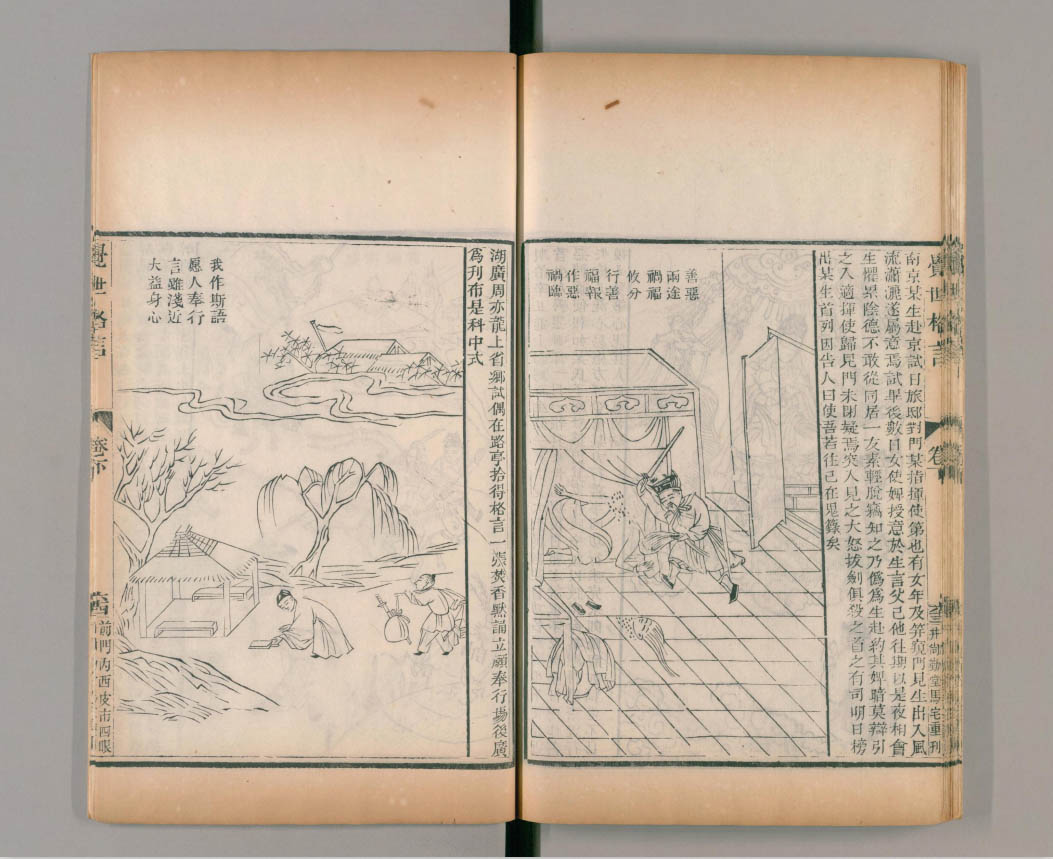 覺世格言
卷
三
南京某生赴京試日旅邸對門某指揮使第也有女年及笄窺門見生出入風
流瀟灑遂屬意焉試畢後數日女使婢授意於生言父已他往期以是夜相會
生懼累陰德不敢從同居一友素輕脫竊知之乃僞爲生赴約其婢暗莫辯引
之入適揮使歸見門未閉疑焉突入見之大怒拔劍俱殺之首之有司明日榜
出某生首列因告人曰使吾若往已在鬼錄矣
善惡
兩途
禍福
攸分
行善
福報
作惡
禍臨
湖廣周亦龍上省鄉試偶在路亭拾得格言一張焚香默誦立願奉行場後廣
爲刊布是科中式
我作斯語
愿人奉行
言雖淺近
大益身心
覺世格言
卷下
四
前門內西皮市西